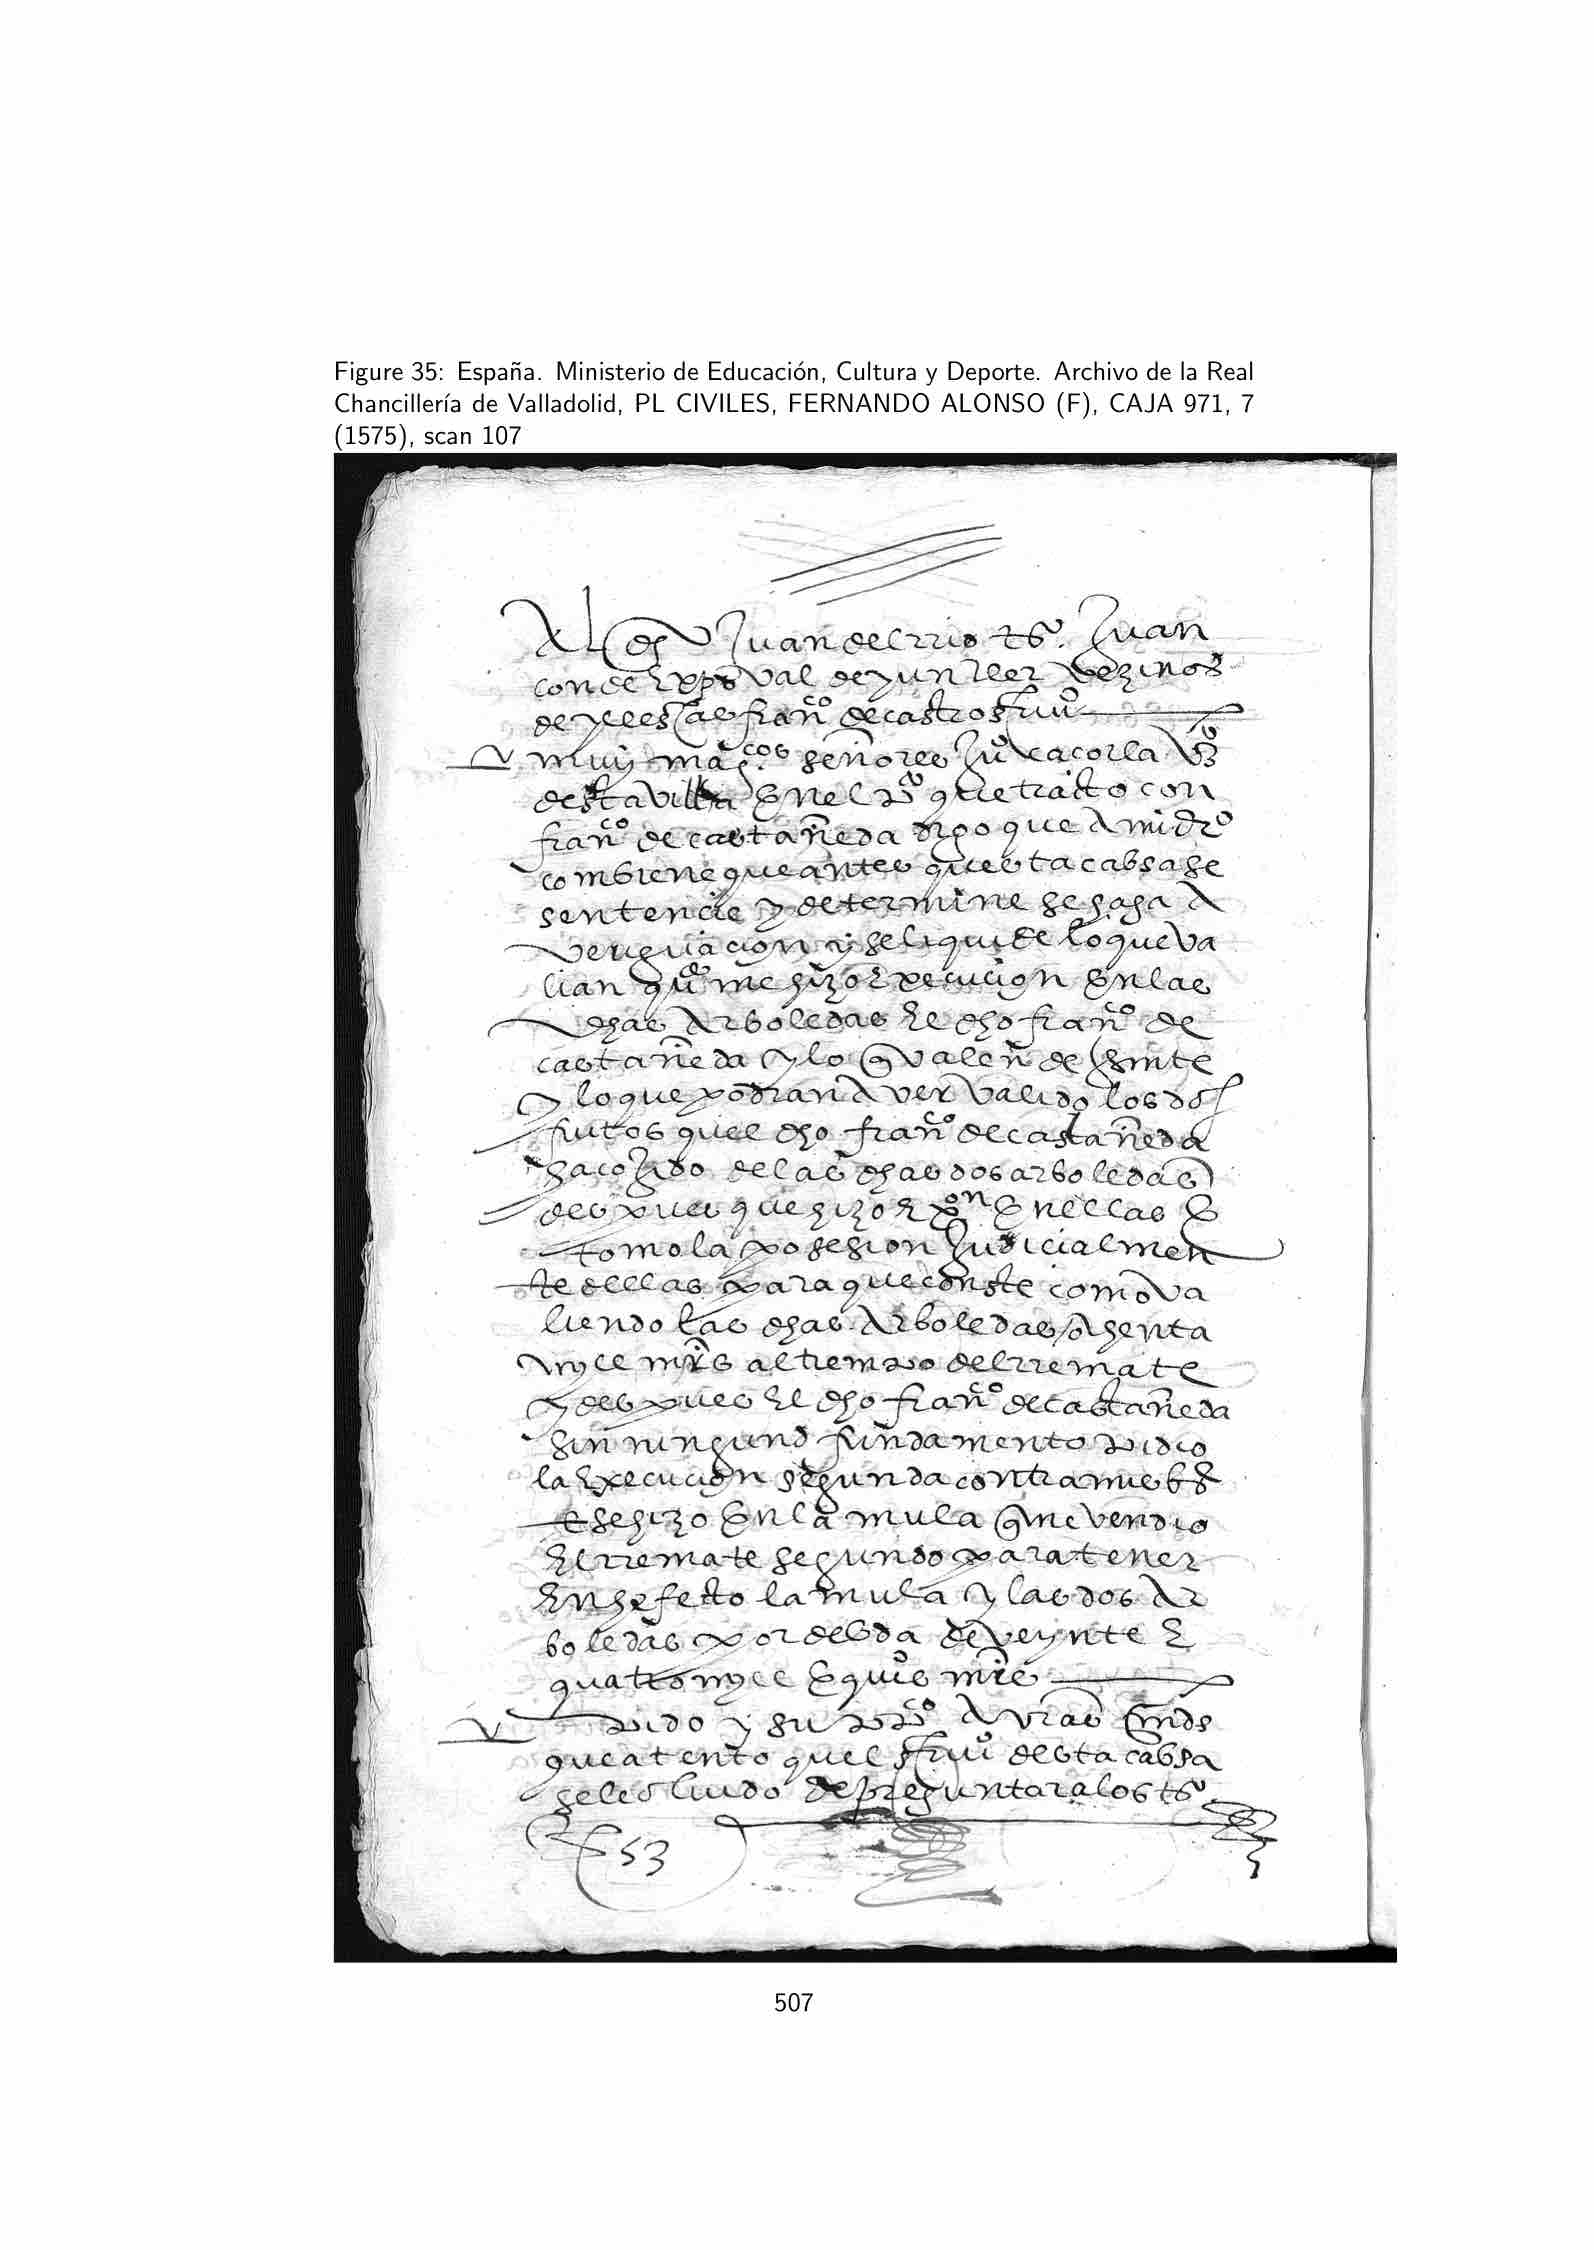 Figure 35: España. Ministerio de Educación, Cultura y Deporte. Archivo de la Real
Chancillería de Valladolid, PL CIVILES, FERNANDO ALONSO (F), CAJA 971, 7
(1575), scan 107
Juan del rrio tos. Juan
conde xpoval de yunller vezinos
de yllescas franco de castro scriuo
muy magcos señores juo cacorla vo
desta villa en el po que trato con
franco de castañeda digo que a mi dro
combiene que antes questa cabsa se
sentencie y determine se haga a
veriguacion y se liquide lo que va
lian quo me hizo execucion en las
dhas arboledas el dho franco de
castañeda y lo q valen de presente
y lo que podran aver valido los dos
frutos quel dho franco de castañeda
ha cojido de las dhas dos arboledas
despues que hizo exon en ellas e
tomo la posesion judicialmen
te dellas para que conste como va
liendo las dhas arboledas ochenta
myll mrs al tiempo del rremate
y despues el dho franco de castañeda
sin ningund fundamento pidio
la execucion segunda contra mis bs
e se hizo en la mula q me vendio
el rremate segundo para tener
en hefecto la mula y las dos ar
boledas por debda de veynte e
quatro myll e quis mrs
pido y supco a vras mds
que atento quel scriuo desta cabsa
se les oluido de preguntar a los tos
53
507